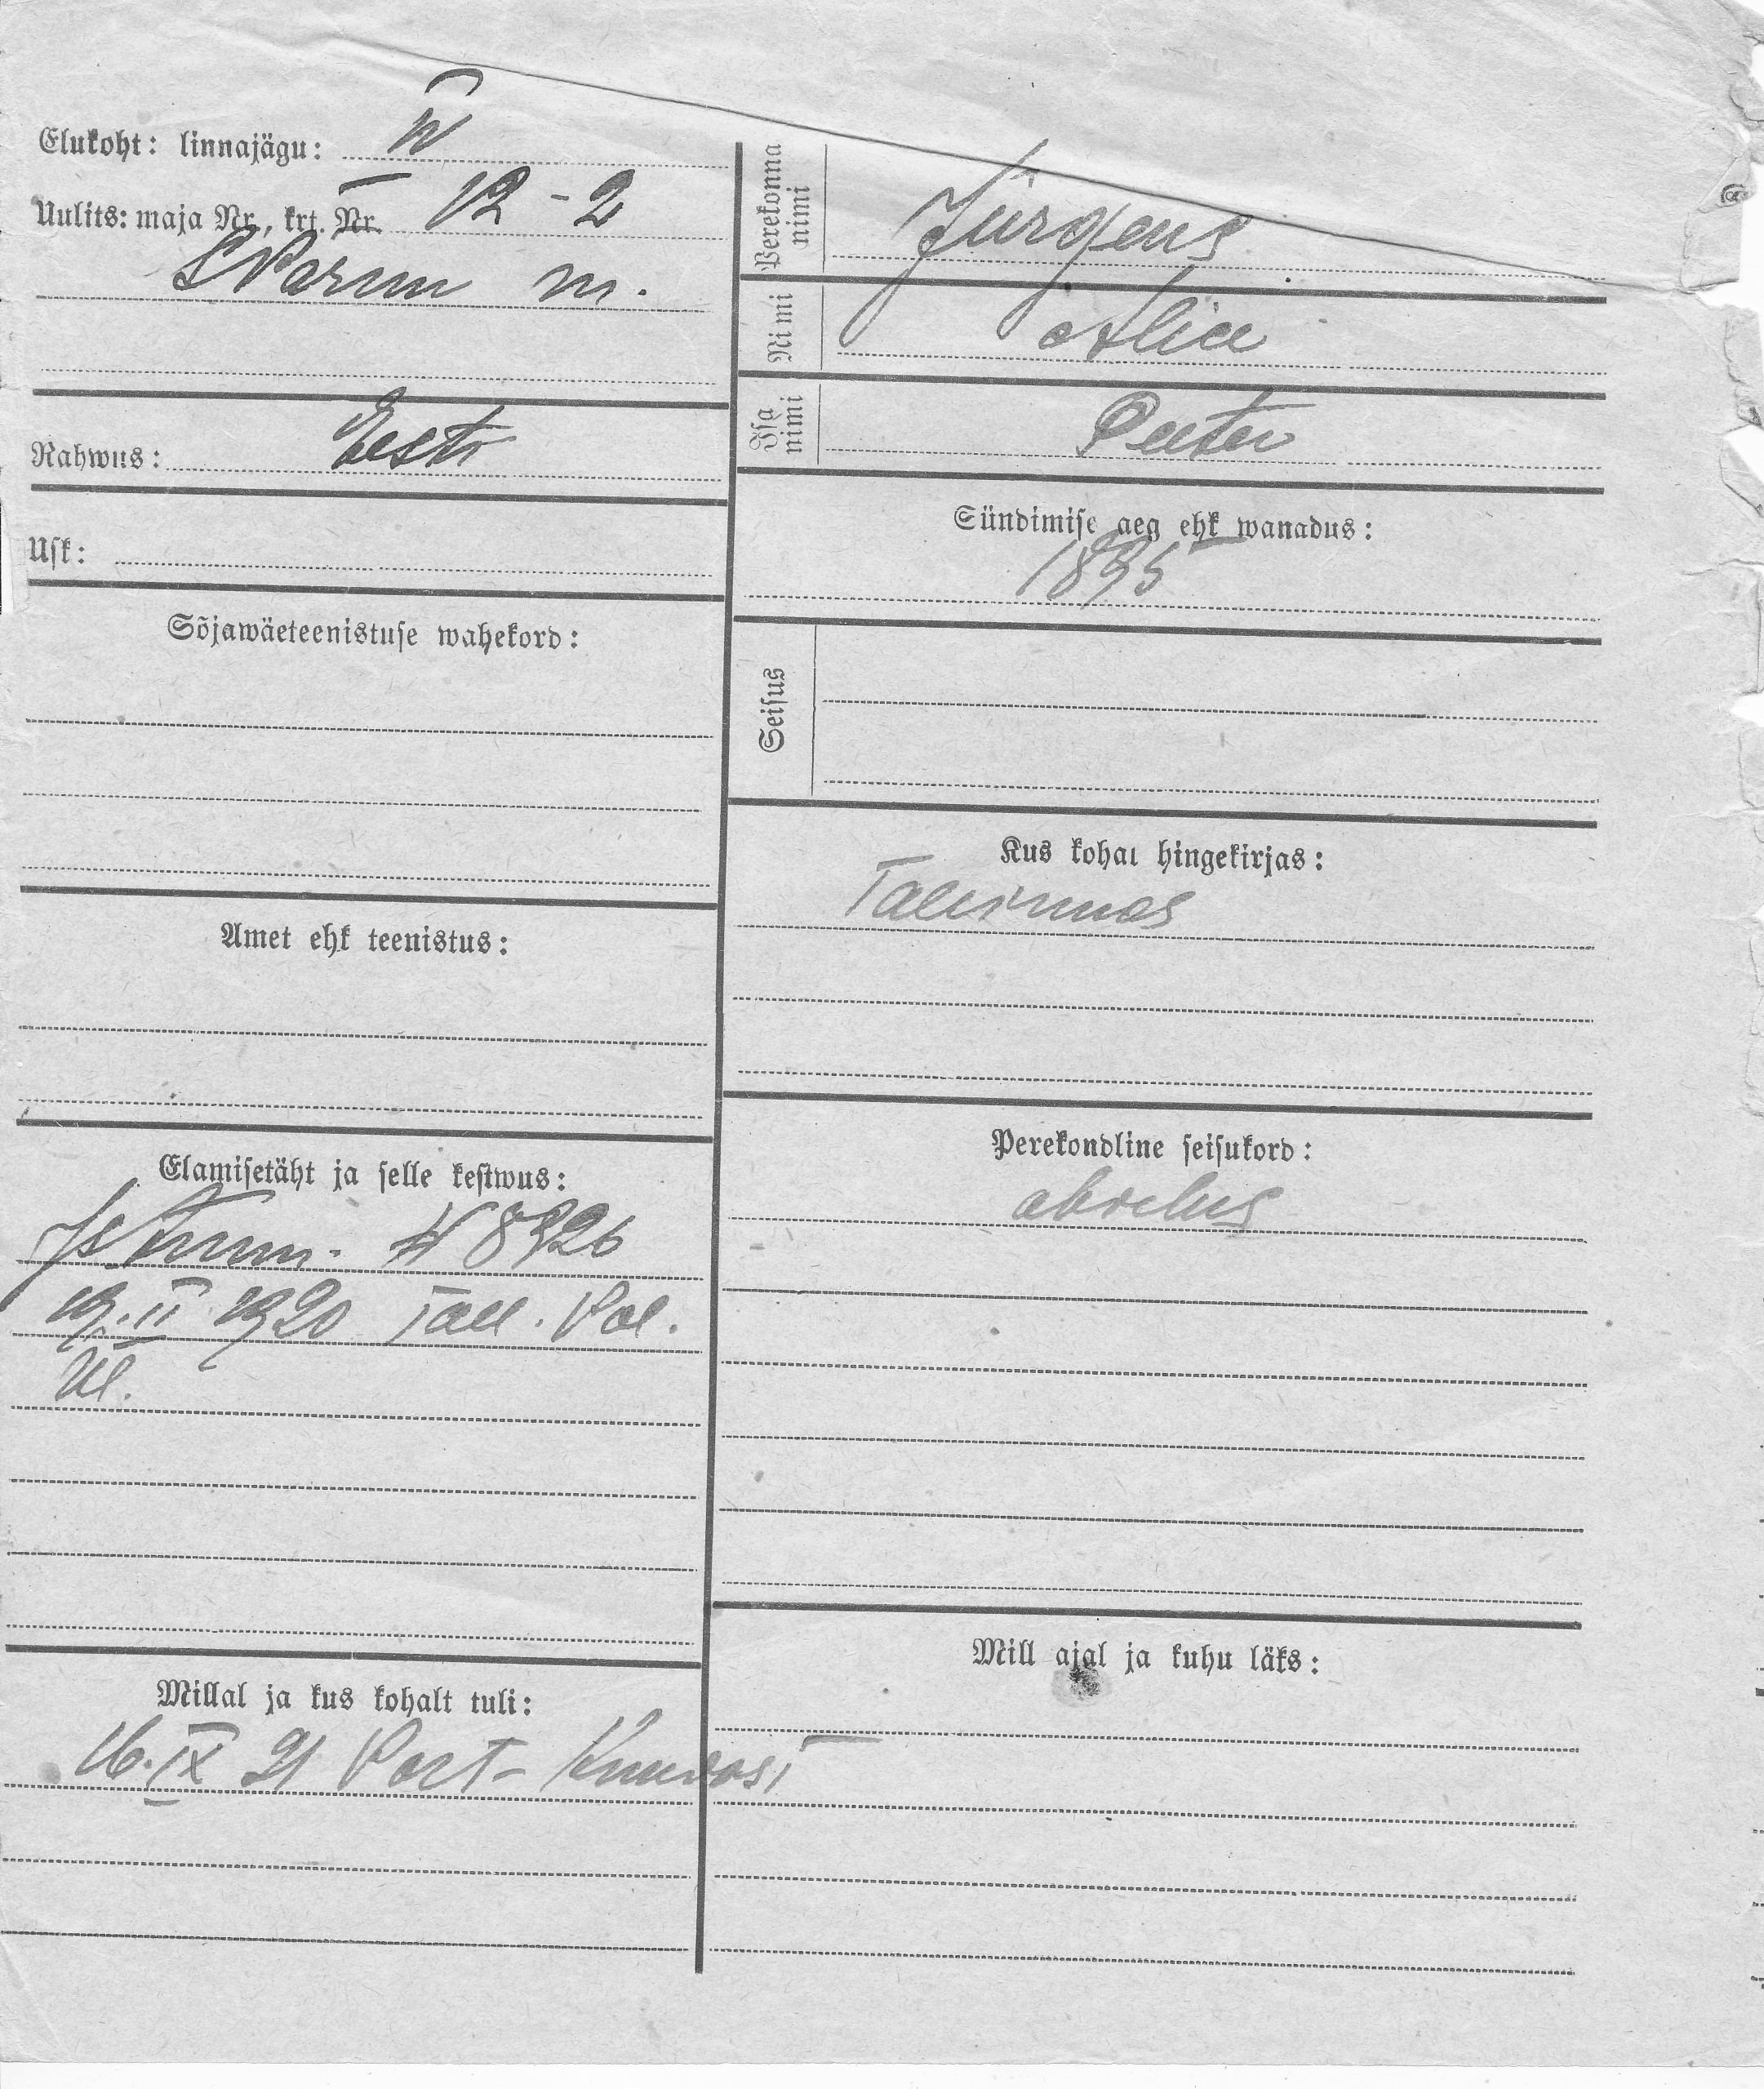 Elukoht: linnajägu: IV
Uulits: maja Nr., krt. Nr. 12 - 2
S. Pärnu m.
Rahwus: Eesti
Usk:
Sõjawäeteenistuse wahekord:
Amet ehk teenistus:
Elamisetäht ja selle kestwus:
8926
19. II 1920 Tall. Pol.
Ül.
Millal ja kus kohalt tuli:
16. IX 21 Port-Kundast
Perekonna nimi Jürgens
Nimi Alice
Isa nimi Peeter
Sündimise aeg ehk wanadus:
1895
Seisus
Kus kohal hingekirjas:
Tallinnas
Perekondline seisukord:
abielus
Mill ajal ja kuhu läks: